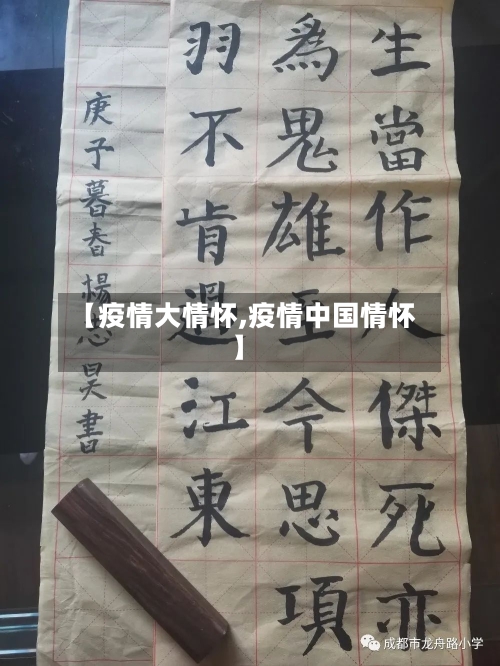 生當作人傑死亦
為鬼雄至今思項
羽不肯過江東
庚子暮春楊昊書
【疫情大情怀,疫情中国情怀
】
成都市龙舟路小学